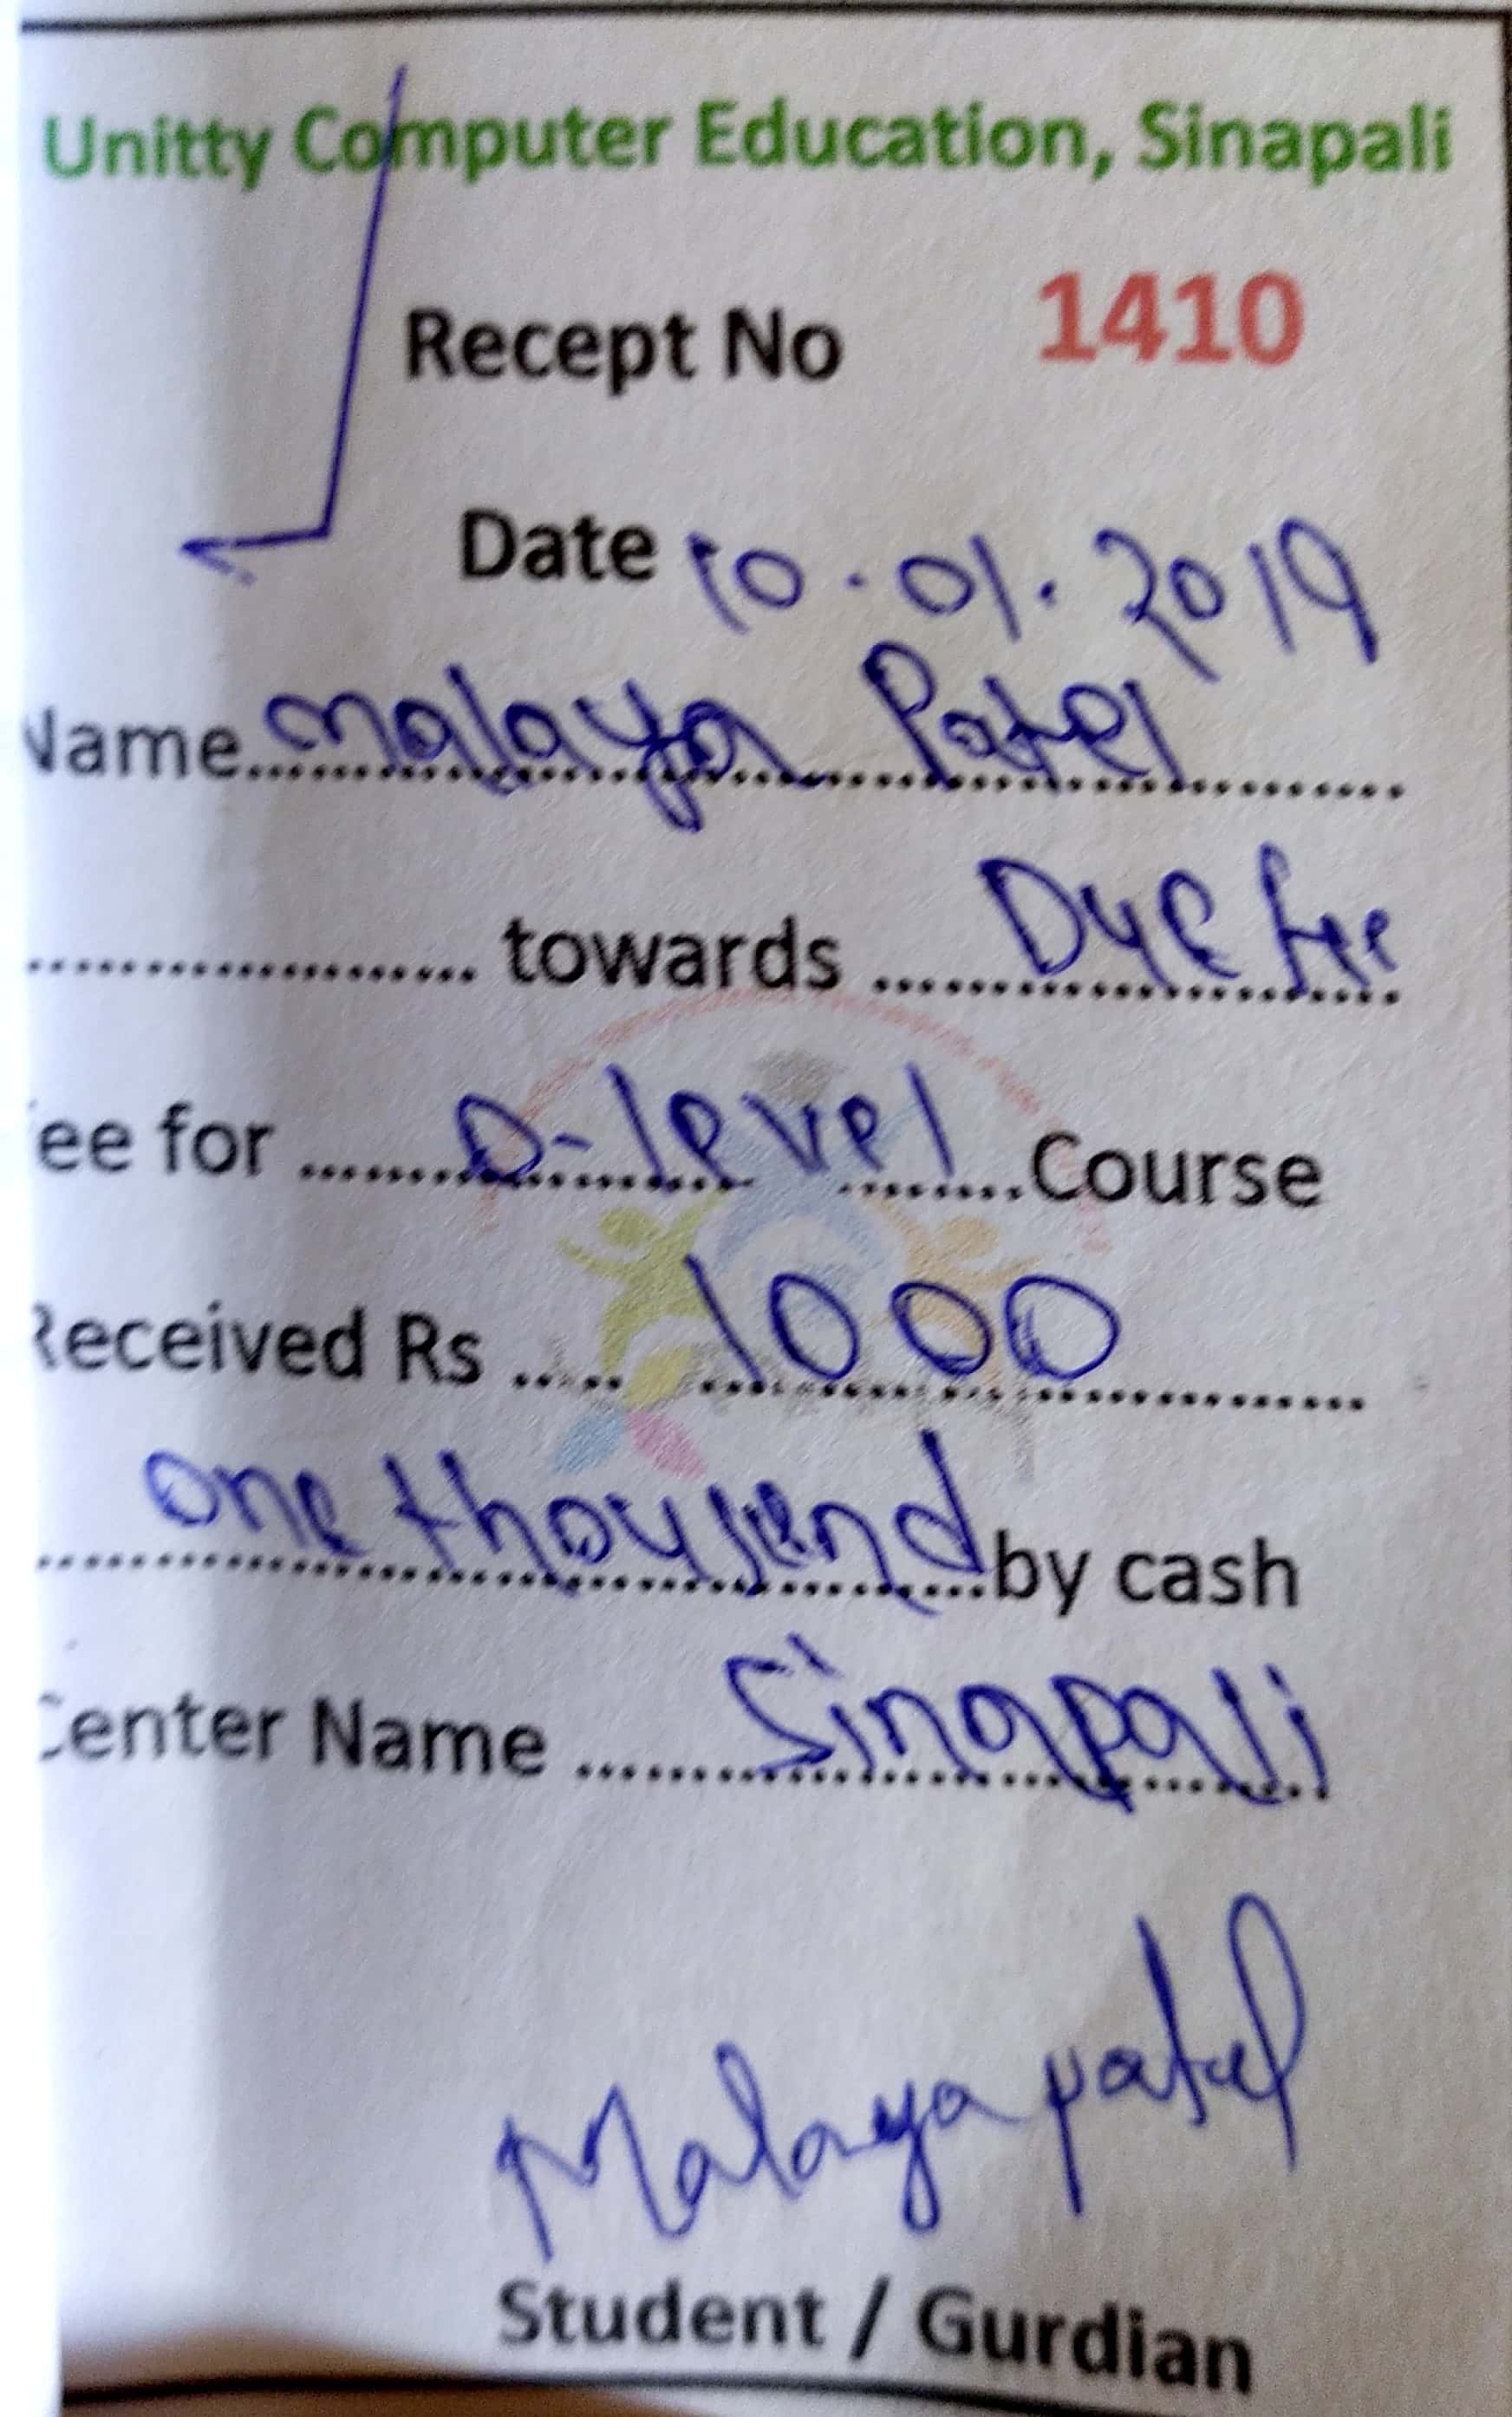 Unitty Computer Education, Sinapali
Recept No 1410
Date 10.01.2019
Name malaya Patel
towards Due fee
ee for O-level Course
Received Rs 1000
one thousend by cash
Center Name Sinapali
Malaya patel
Student / Gurdian